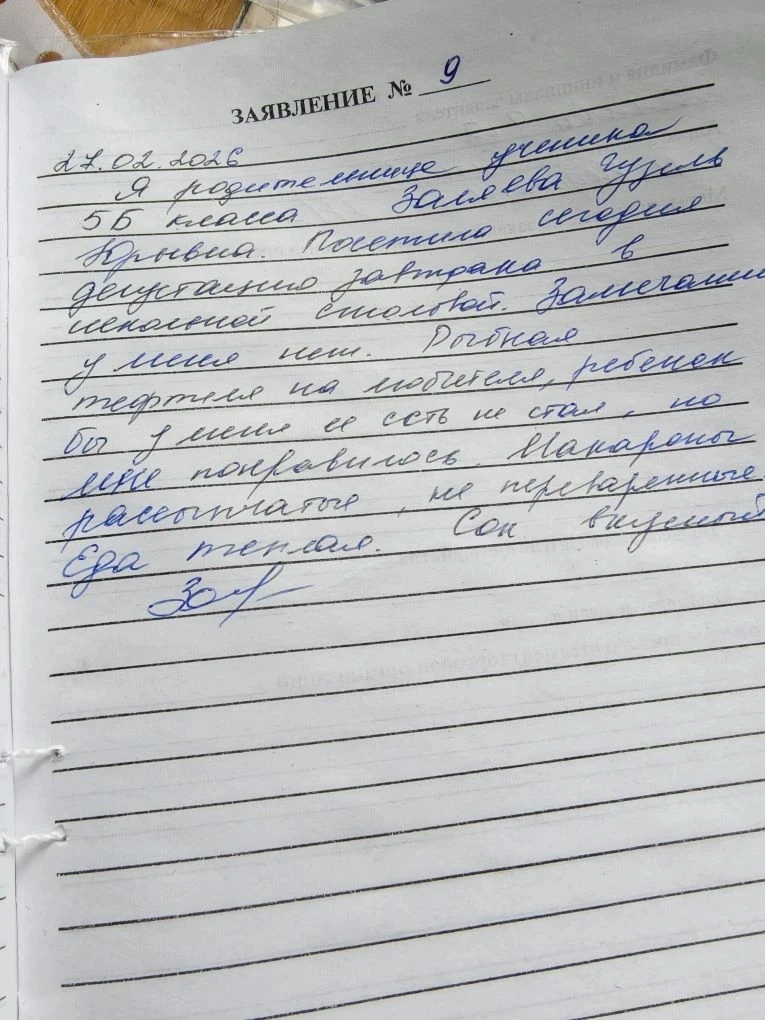 ЗАЯВЛЕНИЕ № 9
27.02.2026
Я родительница ученика
5Б класса Заляева Гузель
Юрьевна. Посетила сегодня
дегустацию завтрака в
школьной столовой. Замечаний
у меня нет. Рыбная
тефтеля на любителя, ребенок
бы у меня ее есть не стал, но
мне понравилось. Макароны
рассыпчатые, не переваренные.
Еда теплая. Сок вкусный